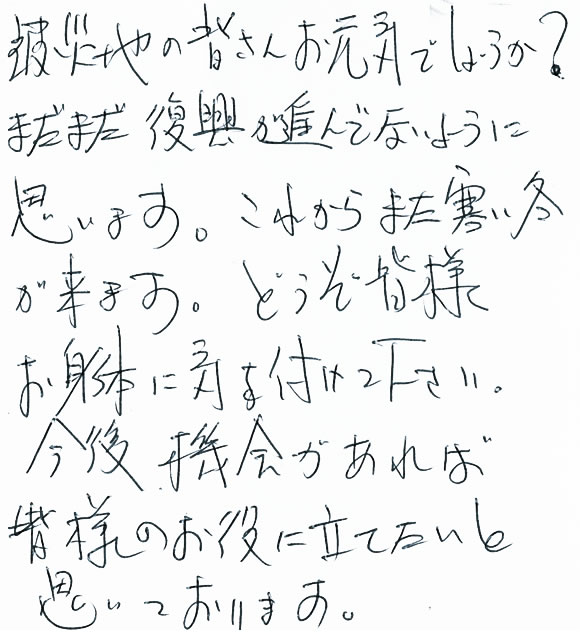 被災地の皆さんお元気でしょうか?
まだまだ復興が進んでないように
思います。これからまた寒い冬
が来ます。どうぞ皆様
お身体に気を付けて下さい。
今後機会があれば
皆様のお役に立てたいと
思いております。